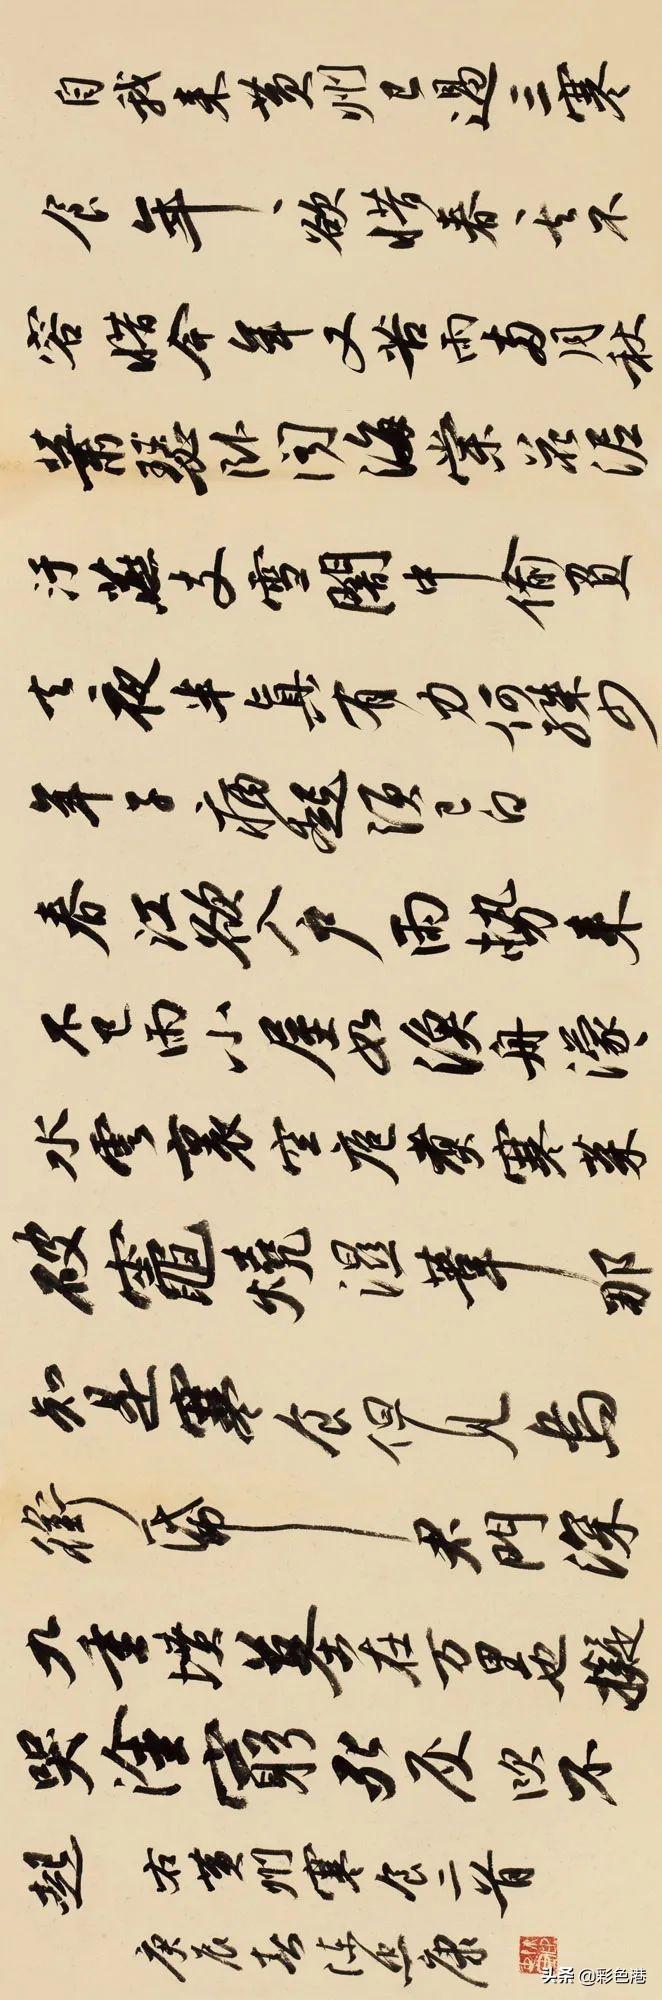 自我来黄州已過三寒
食年々欲惜春々去不
容惜今年又苦雨兩月秋
蕭瑟卧聞海棠花泥
汙燕支雪闇中偷負
去夜半真有力何殊少
年子病起須已白
春江欲入户雨勢来
不已雨小屋如漁舟濛々
水雲裏空庖煮寒菜
破竈燒溼葦那
知是寒食但見烏
銜帋君門深
九重墳墓在万里也擬
哭塗窮死灰吹不
起 右黄州寒食二首
庚辰春陈忠康
头条 @彩色港